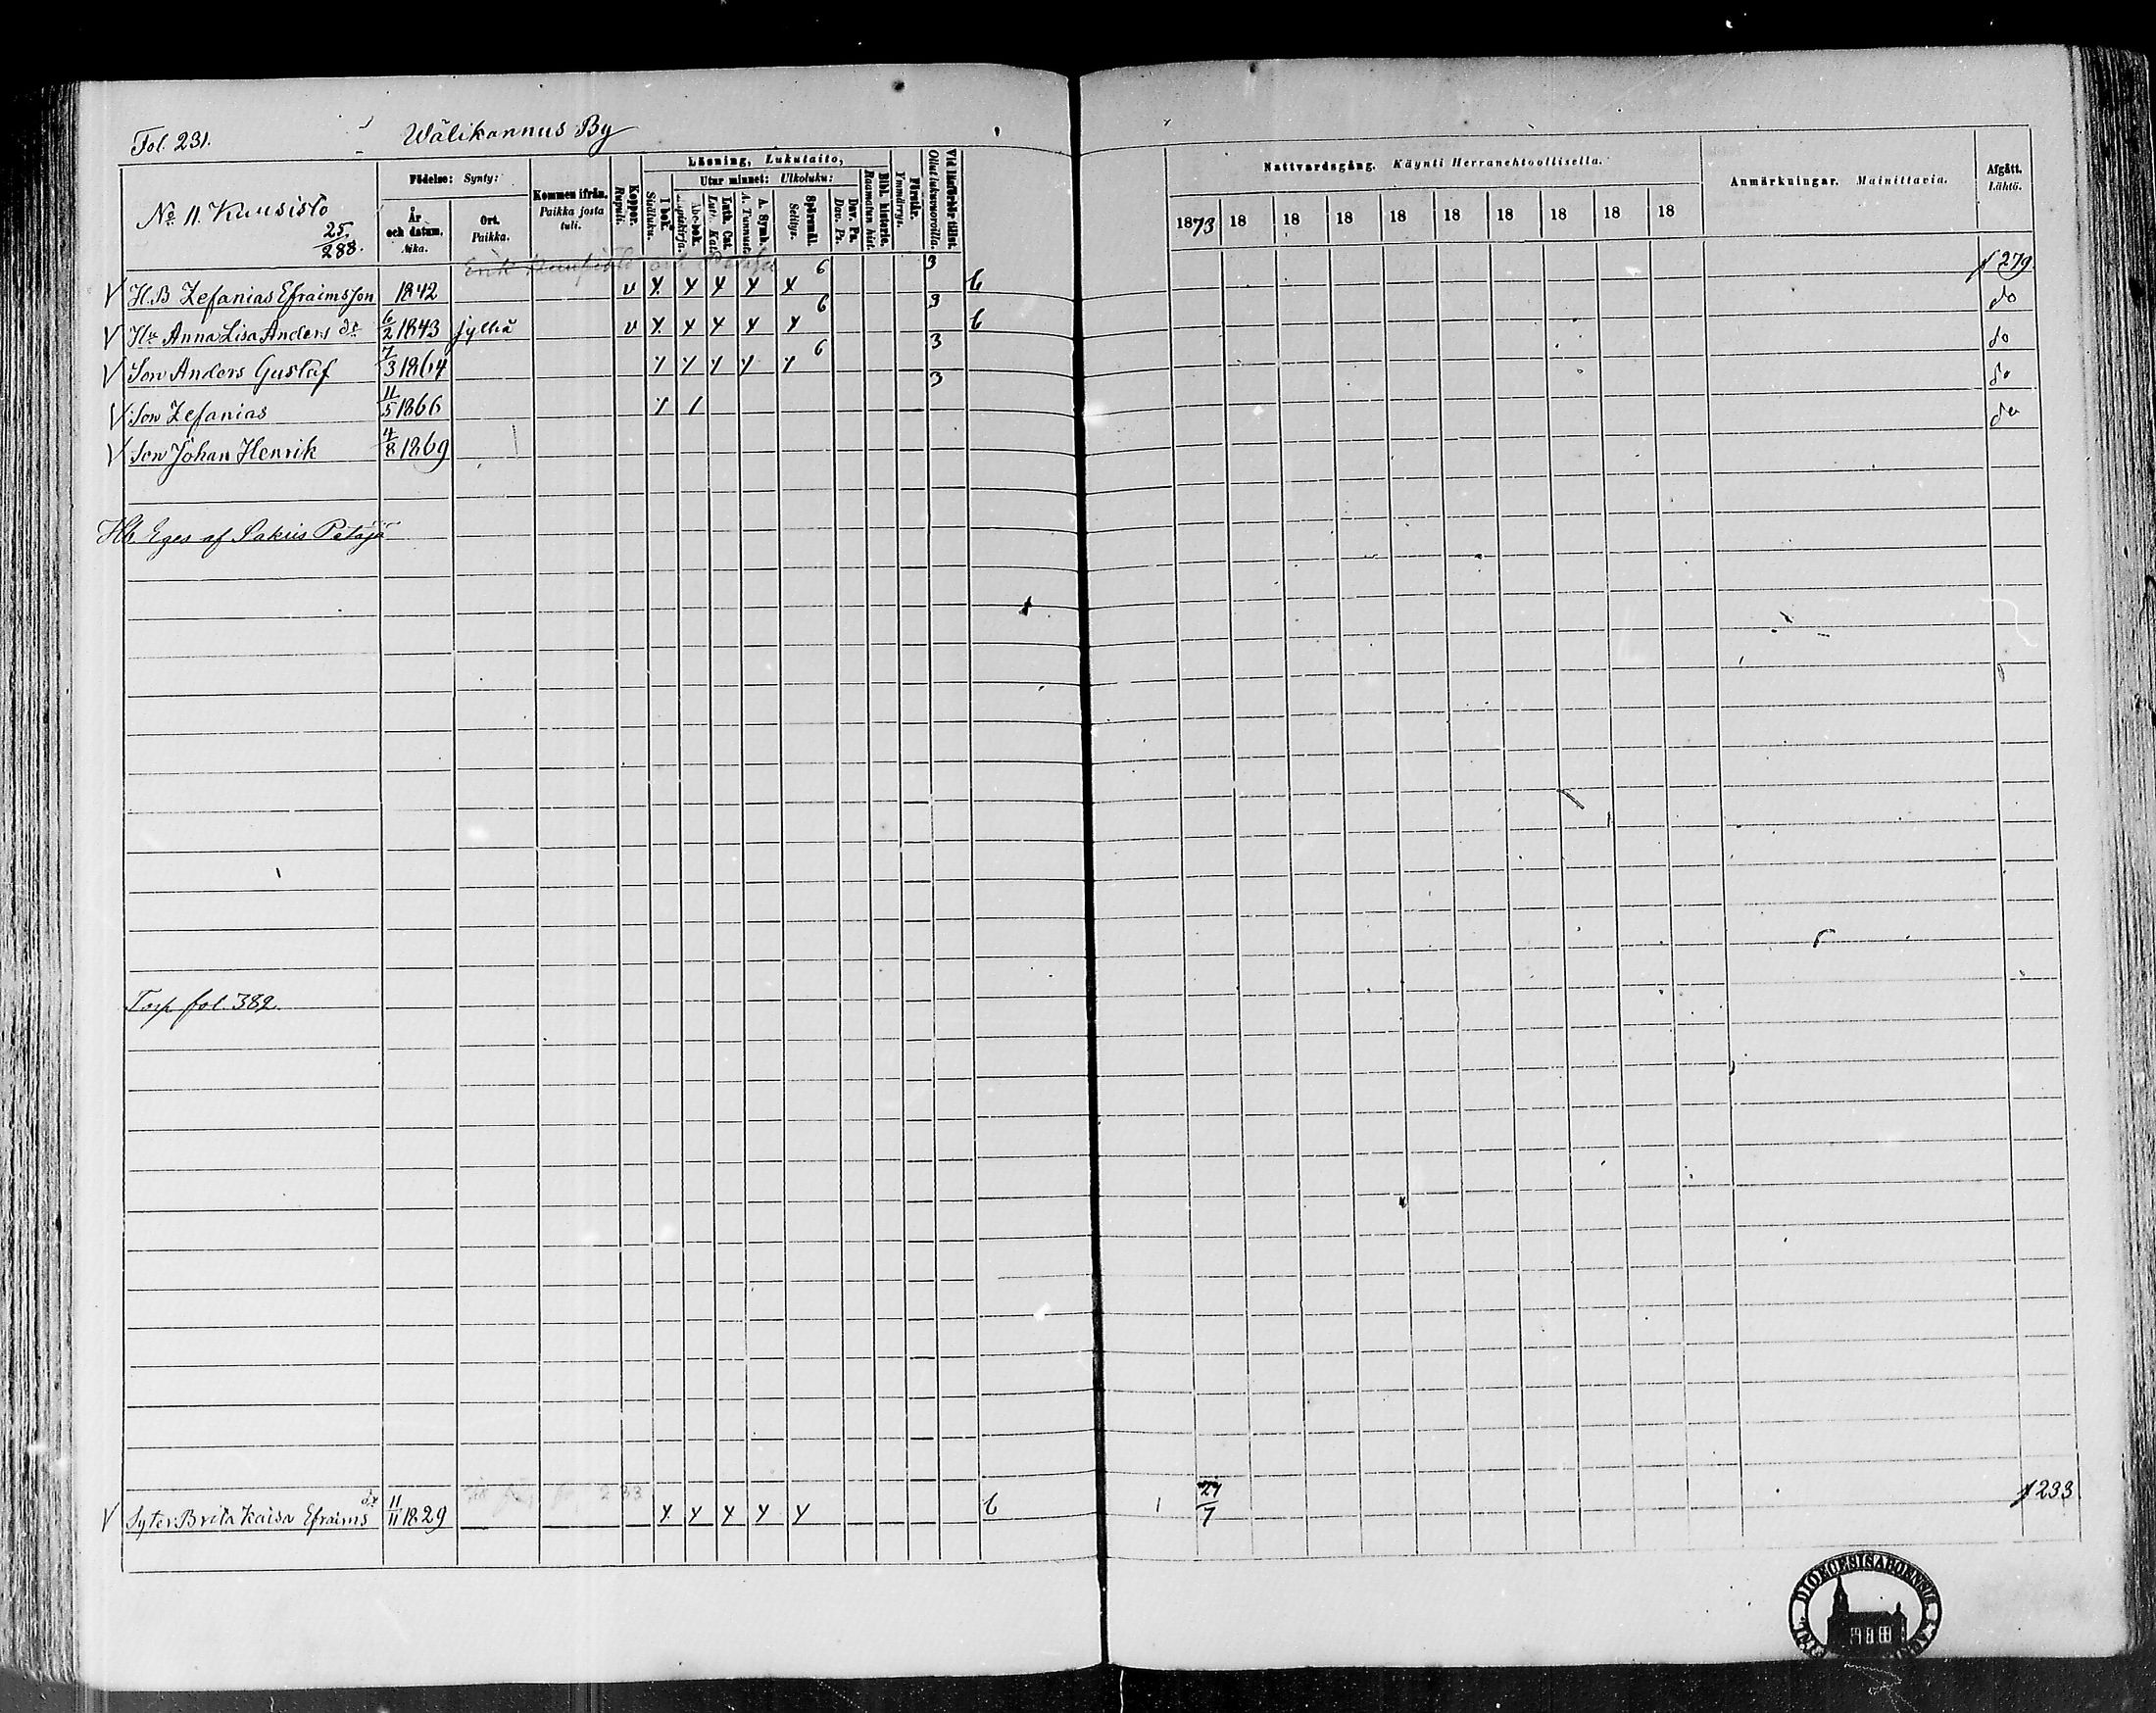 Fol. 231.
Wälikannus By
No 11. Kuusisto
25
288.
Födelse: Synty:
År och datum. Aika.
Ort. Paikka.
Kommen ifrån. Paikka josta tuli.
Koppor. Rupuli.
Läsning, Lukutaito,
I bok. Sisäluku.
Utur minnet: Ulkoluku:
Abc-bok. Aapiskirja.
Luth. Cat. Lut. Kat.
A. Symb. A. Tunnust.
Spörsmål. Selitys.
Dav. Ps. Dav. Ps.
Bibl. historie. Raamatun hist.
Förstår. Ymmärrys.
Vid läsförhör tillst. Ollut lukuvuoroilla.
Nattvardsgång. Käynti Herranehtoollisella.
1873 18 18 18 18 18 18 18 18 18
Anmärkningar. Mainittavia.
Afgått. Lähtö.
Erik och
V H.B Zefanias Efraimsson 1842 v x x x x x 6 3 b f 279.
V Hu Anna Lisa Anders dr 6/2 1843 Jylhä v x x x x x 6 3 b do
V Son Anders Gustaf 7/3 1864 6 3 do
V Son Zefanias 11/5 1866 3 do
V Son Johan Henrik 4/8 1869 do
Hb. Eges af Sakris Petäjä
Torp fol. 382.
V Syter Brita Kaisa Efraims dr 11/11 1829 x x x x x b 1 27/7 f 233
DIOECESIS ABOENSIS